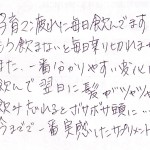 今宵で夜に毎日飲んでます
もう飲まないと毎日乗り切れな
また、一番分かりやすい変化
飲んで翌日に髪がツヤツヤ
飲み忘れるとボサボサ頭に…
今までで一番実感したサプリメント